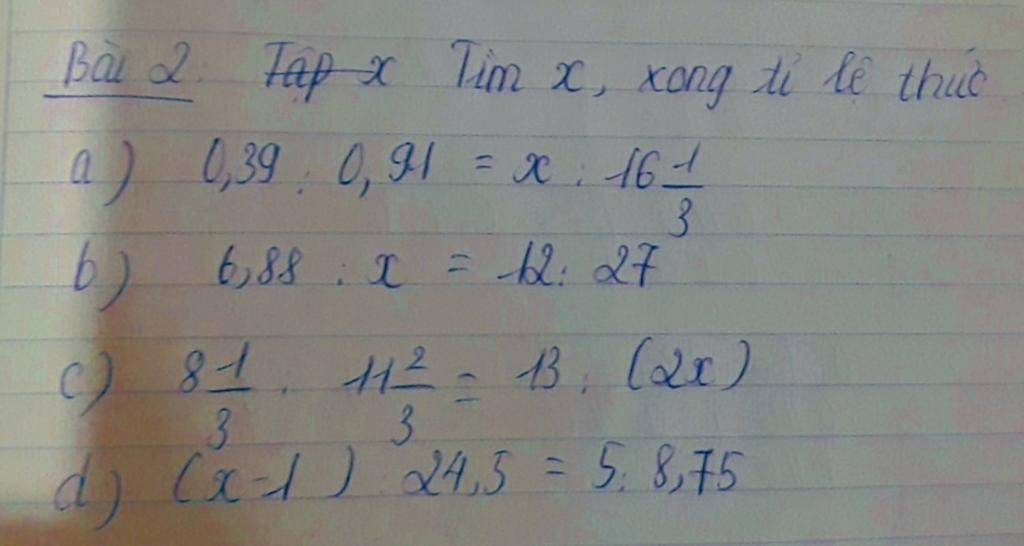 Bài 2. Tập x Tìm x, xong tỉ lệ thức
a) 0,39 : 0,91 = x : 16 1/3
b) 6,88 : x = 12 : 27
c) 8 1/3 : 11 2/3 = 13 : (2x)
d) (x-1) : 24,5 = 5 : 8,75